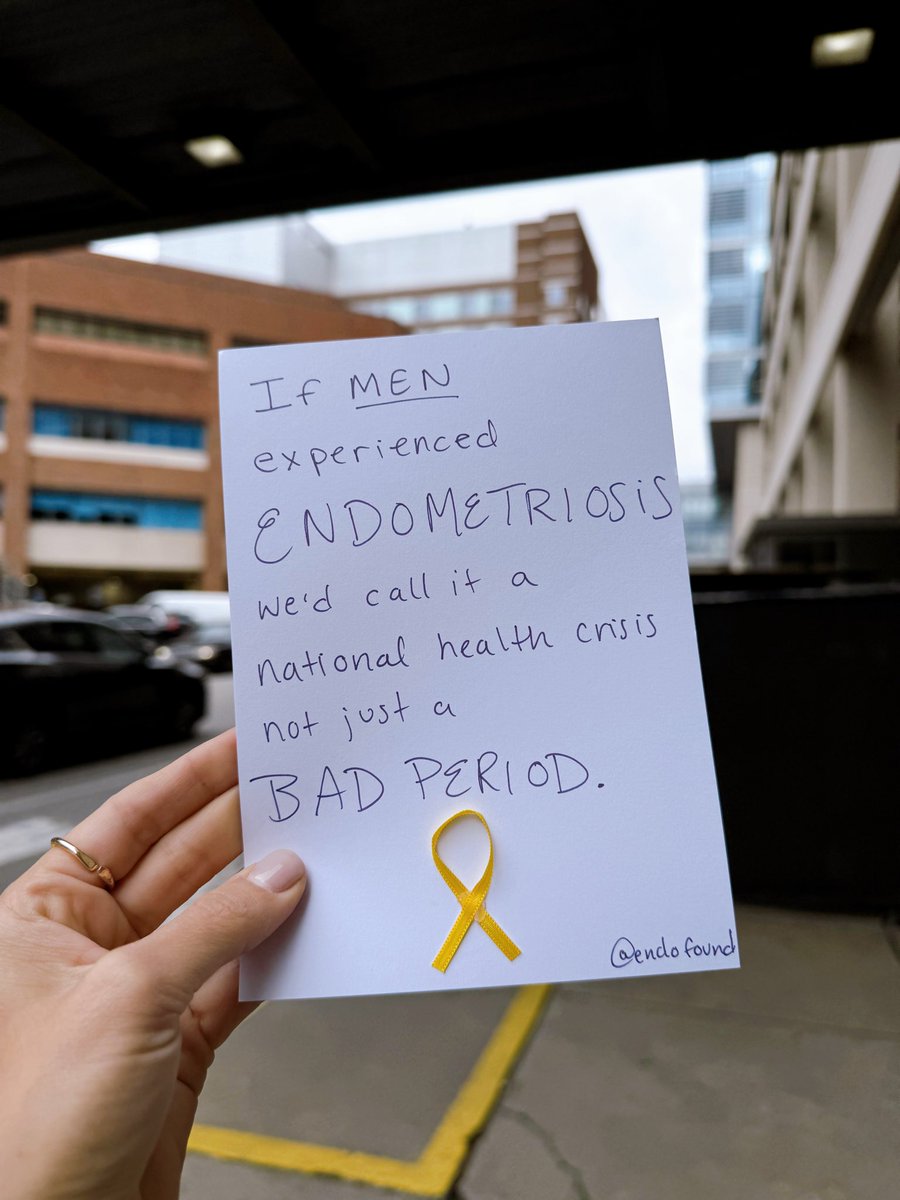 If MEN
experienced
ENDOMETRIOSIS
we'd call it a
national health crisis
not just a
BAD PERIOD.
@endofound